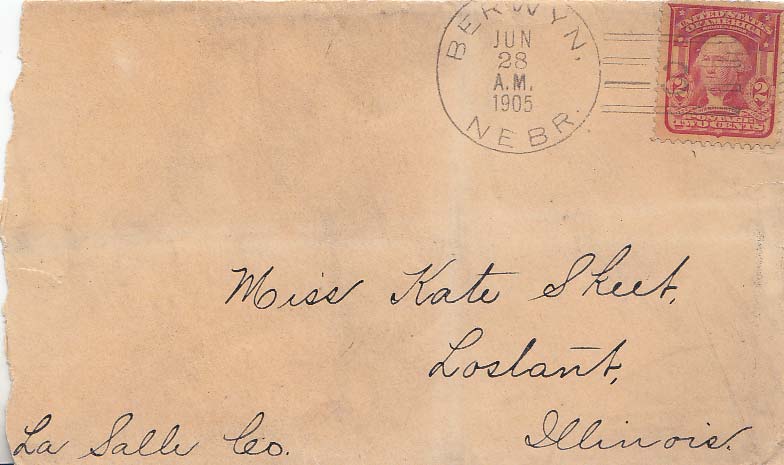 BERWYN, NEBR.
JUN
28
A.M.
1905
UNITED STATES
OF AMERICA
2 2
POSTAGE
TWO CENTS
Miss Kate Skeet,
Lostant,
La Salle Co. Illinois.